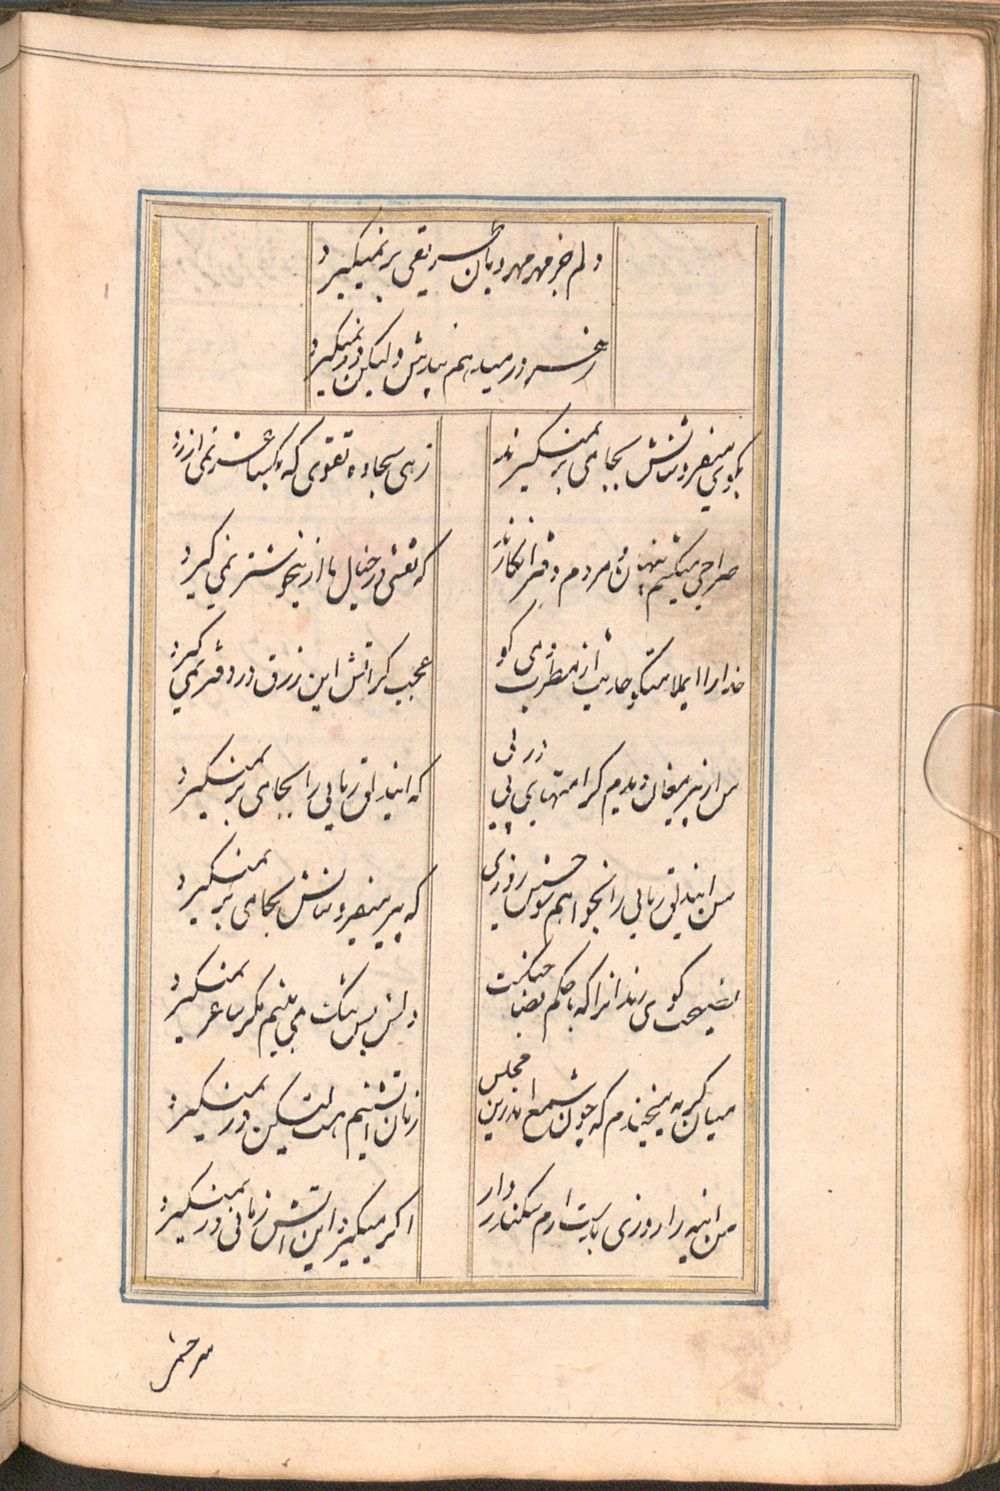 دلم جز مهر مهرویان طریقی بر نمیگیرد
ز هر در میدهم پندش ولیکن در نمیگیرد
بکوی میفروشانش بجامی بر نمیگیرند
زهی سجاده تقوی که یک ساغر نمی ارزد
صراحی میکشم پنهان و مردم دفتر انگارند
که نقشی در خیال ما ازین خوشتر نمی گیرد
خدا را ای ملامتگو حدیث از مطرب و می گو
عجب گر آتش این زرق در دفتر نمی گیرد
من از پیر مغان دیدم کرامتهای پی در پی
که این دلق ریایی را بجامی بر نمیگیرد
من این دلق ریایی را بخواهم سوختن روزی
که پیر میفروشانش بجامی بر نمیگیرد
نصیحت گوی رندانرا که با حکم قضا جنگست
دلش بس تنگ می بینم مگر ساغر نمیگیرد
میان گریه میخندم که چون شمع اندرین مجلس
زبان آتشینم هست لیکن در نمیگیرد
من آیینه را روزی بدست آرم سکندروار
اگر میگیرد این آتش زمانی ور نمیگیرد